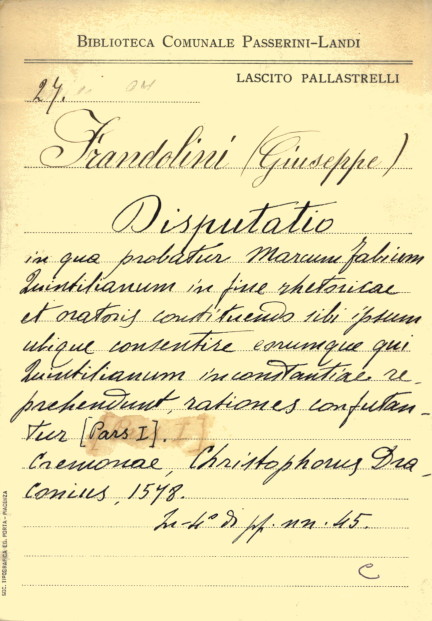 BIBLIOTECA COMUNALE PASSERINI-LANDI
LASCITO PALLASTRELLI
27.
Frandolini (Giuseppe)
Disputatio
in qua probatur Marcum Fabium
Quintilianum in fine rhetoricae
et oratoris constituendo sibi ipsum
ubique consentire eorumque qui
Quintilianum inconstantiae re-
prehendunt, rationes confutan-
tur [Pars I].
Cremonae, Christophorus Dra-
conius, 1578.
In-4° di pp. nn. 45.
C
SOC. TIPOGRAFICA ED. PORTA - PIACENZA